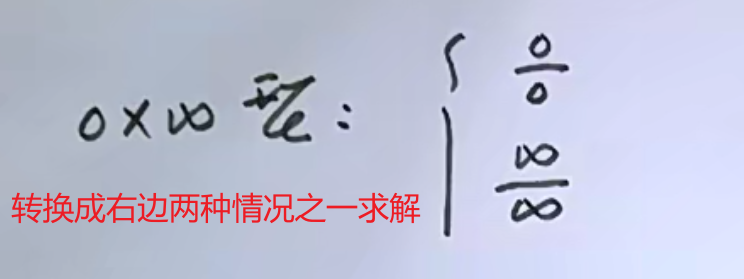 0×∞型: { 0/0
∞/∞
转换成右边两种情况之一求解